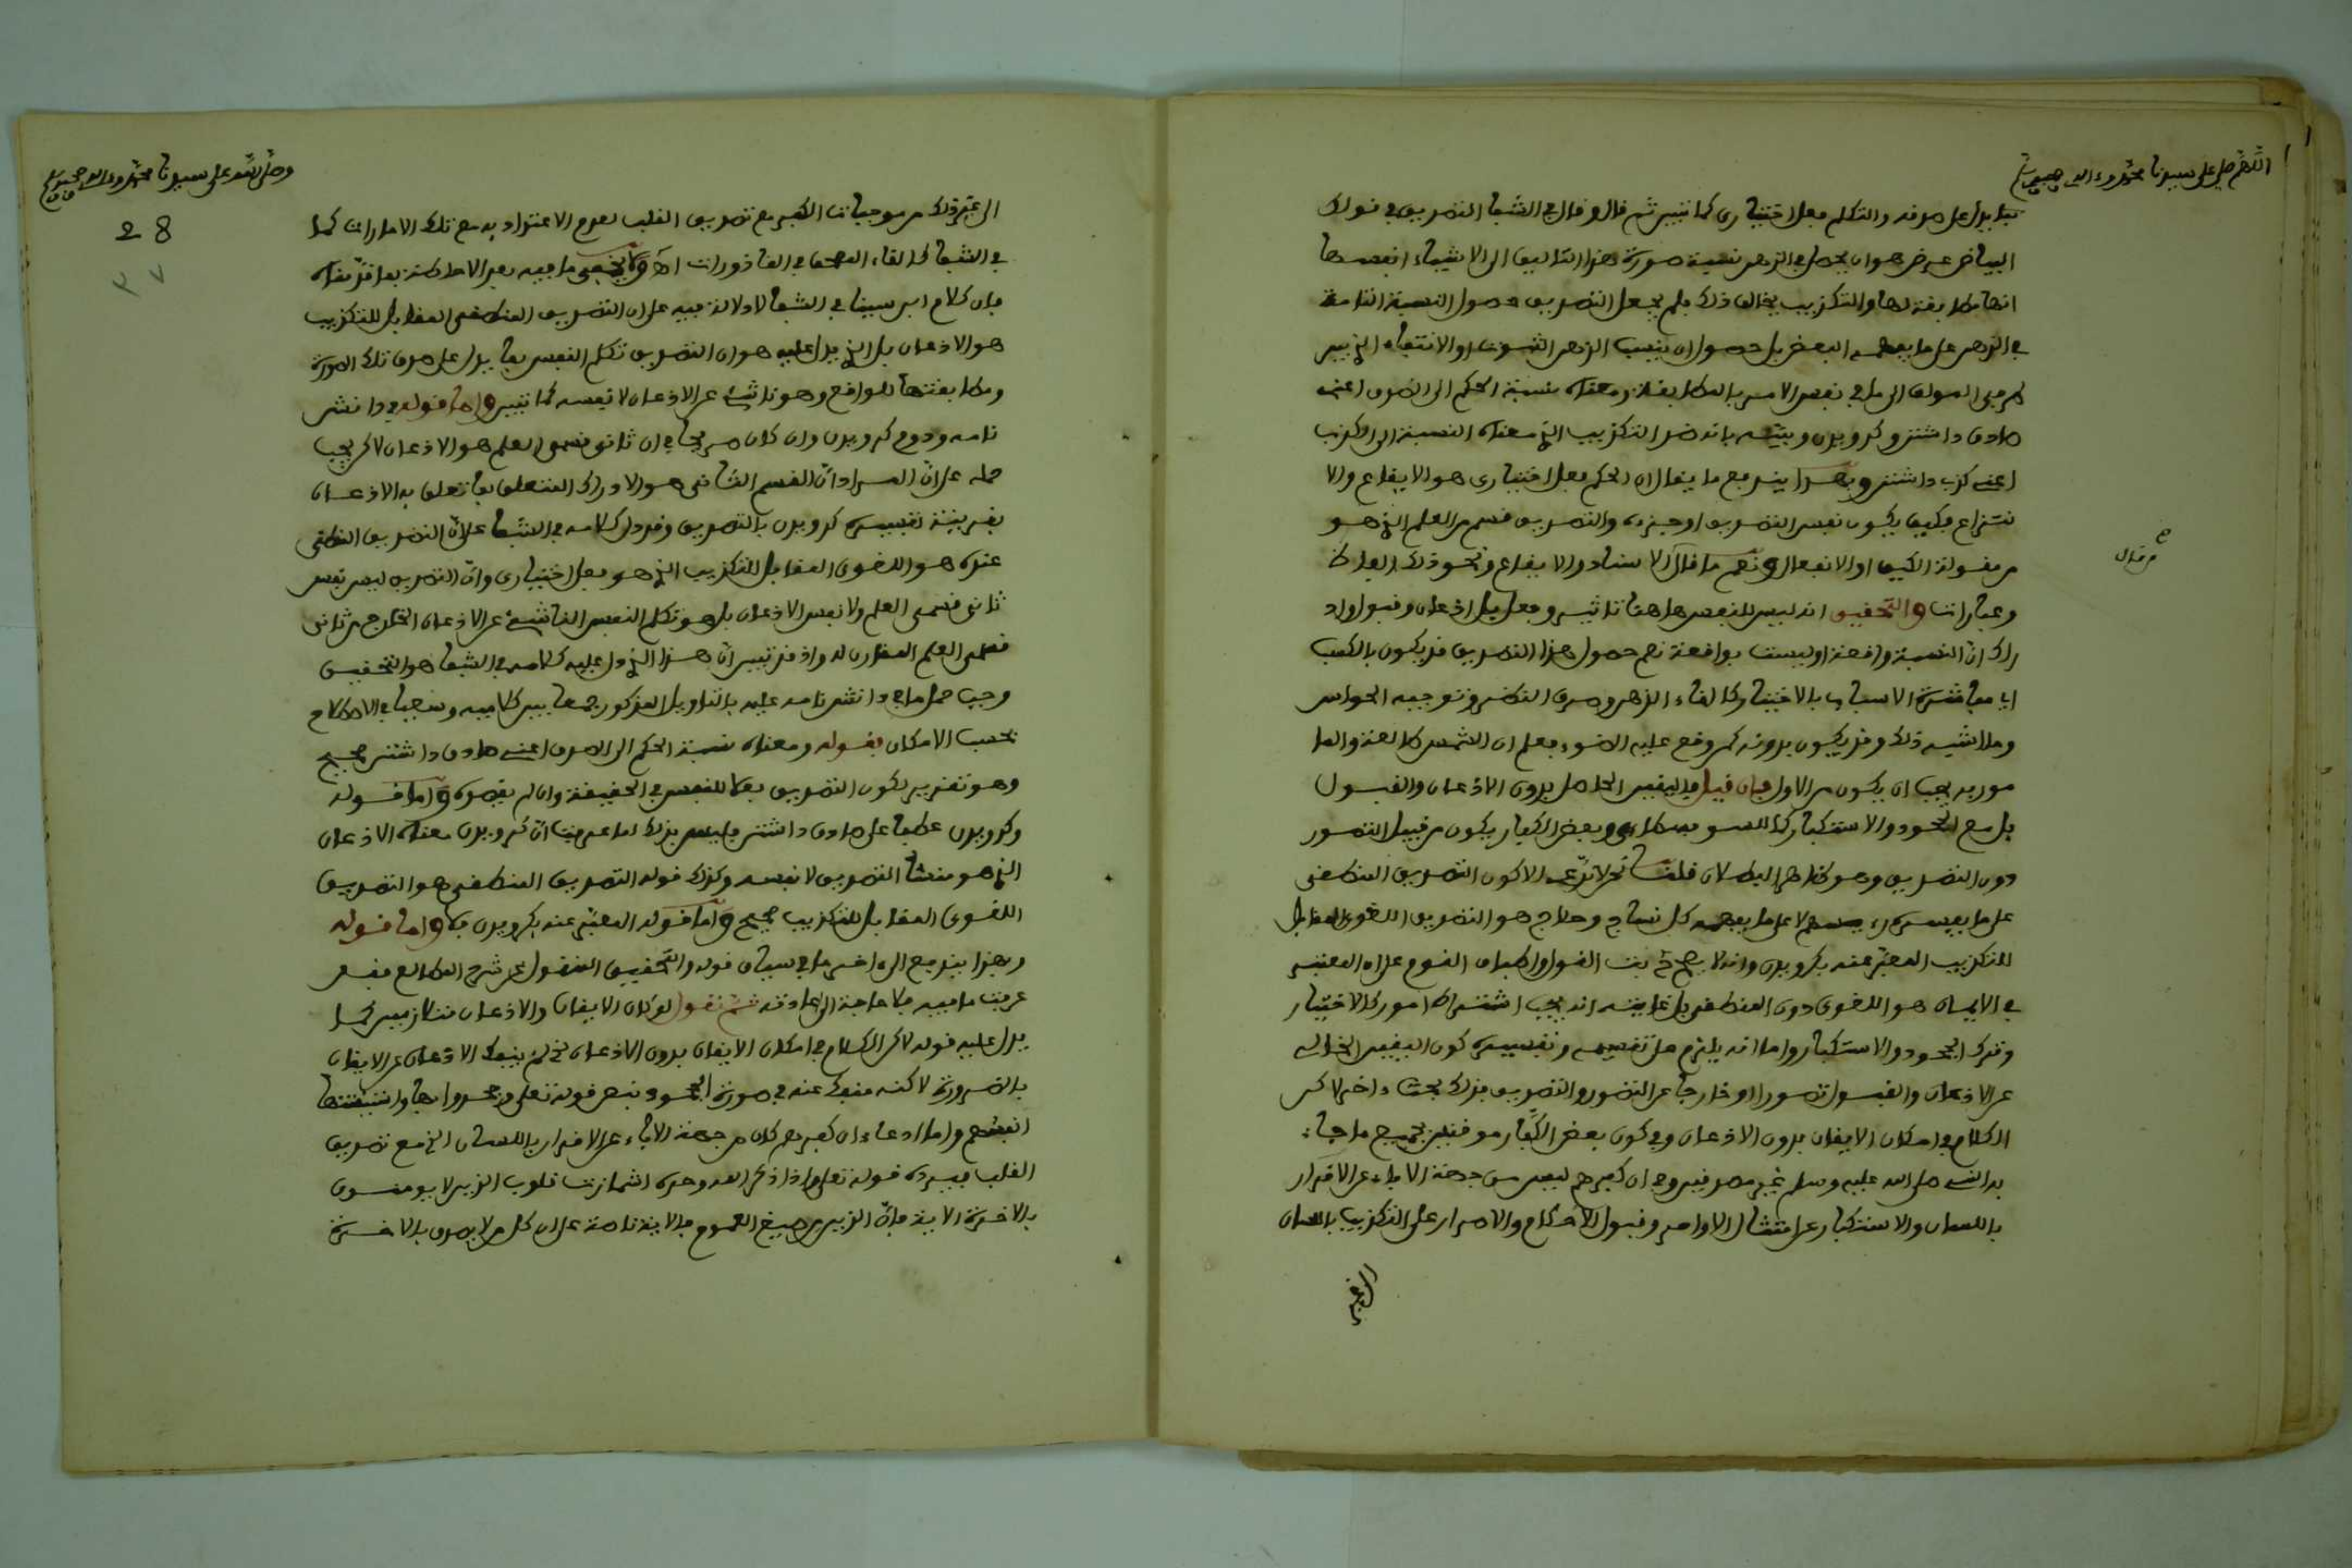 اللهم صل على سيدنا محمد وءاله وصحبه وسلم
بما يدل على صدقه والتكلم فعل اختياري كما تبين ثم قال وقال في الشفا التصديق في قولك
البياض عرض هو ان يحصل في الذهن نسبة صورة هذا التاليف الى الاشياء انفسها
انها مطابقة لها والتكذيب يخالف ذلك فلم يجعل التصديق حصول النسبة التامة
في الذهن على ما يفهمه البعض بل حصول ان ينسب الذهن الثبوت او الانتفاء الذي بين
طرفي المؤلف الى ما في نفس الامر بالمطابقة ومعناه نسبة الحكم الى الصدق اعني
صادق داشتن وكرويدن وبينه بانه ضد التكذيب الذي معناه النسبة الى الكذب
اعني كذب داشتن وبهذا يندفع ما يقال ان الحكم فعل اختياري هو الايقاع والا
نتزاع فكيف يكون نفس التصديق او جزءه والتصديق قسم من العلم الذي هو
من مقولة الكيف او الانفعال ونعم ما قال الاسناد والايقاع ونحو ذلك الفاظ
وعبارات والتحقيق انه ليس للنفس هاهنا تاثير وفعل بل اذعان وقبول واد
راك ان النسبة واقعة او ليست بواقعة نعم حصول هذا التصديق قد يكون بالكسب
اي مباشرة الاسباب بالاختيار كالقاء الذهن وصرف النظر وتوجيه الحواس
وما اشبه ذلك وقد يكون بدونه كمن وقع عليه الضوء فعلم ان الشمس طالعة والما
مور به يجب ان يكون من الاول فان قيل فاليقين الحاصل بدون الاذعان والقبول
بل مع الجحود والاستكبار كما للسوفسطائي وبعض الكفار يكون من قبيل التصور
دون التصديق وهو ظاهر البطلان قلت نحن لا ندعي الا كون التصديق المنطقي
على ما يفسره رءيسهم لا على ما يفهمه كل نساج وحلاج هو التصديق اللغوي المقابل
للتكذيب المعبر عنه بكرويدن وانه لا يصح ح بت القول واطباق القوم على ان المعتبر
في الايمان هو اللغوي دون المنطقي بل غايته انه يجب اشتراط امور كالاختيار
وترك الجحود والاستكبار واما انه يلزم على تقسيمه وتفسيره كون اليقين الخالي
عن الاذعان والقبول تصورا او خارجا عن التصور والتصديق فذلك بحث ءاخر لاكن
الكلام في امكان الايقان بدون الاذعان وفي كون بعض الكفار موقنين بجميع ما جاء
به النبي صلى الله عليه وسلم غير مصدقين وفي ان كفرهم ليس من جهة الاباء عن الاقرار
باللسان والاستكبار عن امتثال الاوامر وقبول الاحكام والاصرار على التكذيب باللسان
الى غير
وصلى الله على سيدنا محمد وءاله وصحبه وسلم
28
٣٧
الى غير ذلك من موجبات الكفر مع تصديق القلب لعدم الاعتداد به مع تلك الامارات كما
في الشفا كالقاء المصحف في القاذورات اه ولا يخفى ما فيه بعد الاحاطة بما قدمناه
فان كلام ابن سينا في الشفا لا دلالة فيه على ان التصديق المنطقي المقابل للتكذيب
هو الاذعان بل الذي يدل عليه هو ان التصديق تكلم النفس بما يدل على صدق تلك الصورة
ومطابقتها للواقع وهو ناشئ عن الاذعان لا نفسه كما تبين واما قوله في دانش
نامه ودوم كرويدن وان كان صريحا في ان ثاني قسمي العلم هو الاذعان لاكن يجب
حمله على ان المراد ان القسم الثاني هو الادراك المتعلق بما تعلق به الاذعان
بقرينة تفسيره كرويدن بالتصديق وقد دل كلامه في الشفا على ان التصديق المنطقي
عنده هو اللغوي المقابل للتكذيب الذي هو فعل اختياري وان التصديق ليس نفس
ثاني قسمي العلم ولا نفس الاذعان بل هو تكلم النفس الناشئ عن الاذعان الخارج عن ثاني
قسمي العلم المقارن له واذ قد تبين ان هذا الذي دل عليه كلامه في الشفا هو التحقيق
وجب حمل ما في دانش نامه عليه بالتاويل المذكور جمعا بين كلاميه وسعيا في الاصلاح
بحسب الامكان فقوله ومعناه نسبة الحكم الى الصدق اعني صادق داشتن صحيح
وهو تقرير لكون التصديق فعلا للنفس في الحقيقة وان لم يقصده واما قوله
وكرويدن عطفا على صادق داشتن فليس بذلك لما عرفت ان كرويدن معناه الاذعان
الذي هو منشا التصديق لا نفسه وكذلك قوله التصديق المنطقي هو التصديق
اللغوي المقابل للتكذيب صحيح واما قوله المعبر عنه بكرويدن فلا واما قوله
وبهذا يندفع الى ءاخر ما في سياق قوله والتحقيق المنقول عن شرح المطالع فقد
عرفت ما فيه فلا حاجة الى اعادته ثم نقول لو كان الايقان والاذعان متلازمين كما
يدل عليه قوله لاكن الكلام في امكان الايقان بدون الاذعان نعم لم ينفك الاذعان عن الايقان
بالضرورة لاكنه منفك عنه في صورة الجحود بنص قوله تعلى وجحدوا بها واستيقنتها
انفسهم واما ادعاء ان كفرهم كان من جهة الاباء عن الاقرار باللسان الخ مع تصديق
القلب فيرده قوله تعلى واذا ذكر الله وحده اشمازت قلوب الذين لا يومنون
بالاخرة الاية فان الذين من صيغ العموم فالاية ناصة على ان كل من لا يومن بالاخرة